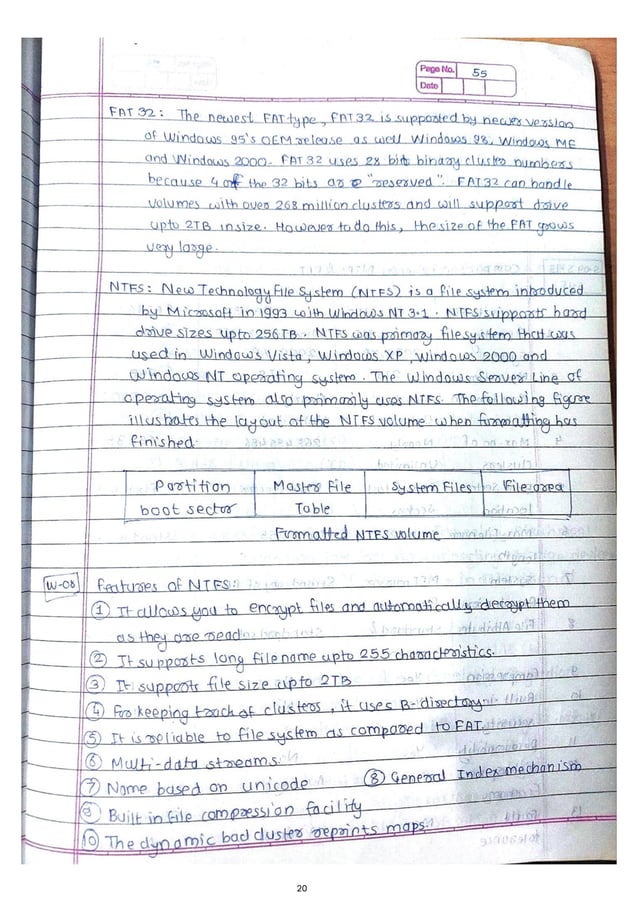 Page No. 55
Date
FAT 32: The newest FAT type, FAT 32 is supported by newer version
of Windows 95's OEM release as well Windows 98, Windows ME
and Windows 2000. FAT 32 uses 28 bit binary cluster numbers
because 4 of the 32 bits are "reserved". FAT 32 can handle
volumes with over 268 million clusters and will support drive
upto 2TB in size. However to do this, the size of the FAT grows
very large.
NTFS: New Technology File System (NTFS) is a file system introduced
by Microsoft in 1993 with Windows NT 3.1. NTFS supports hard
drive sizes upto 256TB. NTFS was primary file system that was
used in Windows Vista, Windows XP, Windows 2000 and
Windows NT operating system. The Windows Server Line of
operating system also primarily uses NTFS. The following figure
illustrates the layout of the NTFS volume when furmatting has
finished.
Partition Master File System Files File area
boot sector Table
Furmatted NTFS volume
W-08 Features of NTFS:
① It allows you to encrypt files and automatically decrypt them
as they are read
② It supports long file name upto 255 characteristics.
③ It supports file size upto 2TB
④ For keeping track of clusters, it uses B-directory
⑤ It is reliable to file system as compared to FAT.
⑥ Multi-data streams.
⑦ Name based on unicode ⑧ General Index mechanism
⑨ Built in file compression facility
⑩ The dynamic bad cluster reprints maps.
20